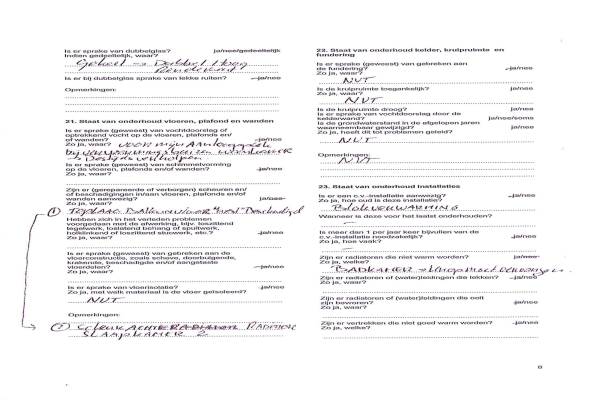 Is er sprake van dubbelglas? ja/nee/gedeeltelijk
Indien gedeeltelijk, waar?
Geheel → Dubbel Hoog
Rendement
Is er bij dubbelglas sprake van lekke ruiten? ja/nee
Opmerkingen:
21. Staat van onderhoud vloeren, plafond en wanden
Is er sprake (geweest) van vochtdoorslag of
optrekkend vocht op de vloeren, plafonds en/
of wanden? ja/nee
Zo ja, waar? VOOR mijn AANKoop
bij
→ Destijds verholpen
Is er sprake (geweest) van schimmelvorming
op de vloeren, plafonds en/of wanden? ja/nee
Zo ja, waar?
Zijn er (gerepareerde of verborgen) scheuren en/
of beschadigingen in/aan vloeren, plafonds en/of
wanden aanwezig? ja/nee
Zo ja, waar?
①
Hebben zich in het verleden problemen
voorgedaan met de afwerking, bijv. loszittend
tegelwerk, loslatend behang of spuitwerk,
holklinkend of loszittend stucwerk, etc.? ja/nee
Zo ja, waar?
Is er sprake (geweest) van gebreken aan de
vloerconstructie, zoals scheve, doorbuigende,
krakende, beschadigde en/of aangetaste
vloerdelen? ja/nee
Zo ja, waar?
Is er sprake van vloerisolatie? ja/nee
Zo ja, met walk materiaal is de vloer geïsoleerd?
NVT
Opmerkingen:
② Scheur ACHTER RADIATOR
SLAAPKAMER 2
22. Staat van onderhoud kelder, kruipruimte en
fundering
Is er sprake (geweest) van gebreken aan
de fundering? ja/nee
Zo ja, waar?
NVT
Is de kruipruimte toegankelijk? ja/nee
Zo ja, waar?
NVT
Is de kruipruimte droog? ja/nee
Is er sprake van vochtdoorslag door de
kelderwand? ja/nee/soms
Is de grondwaterstand in de afgelopen jaren
waarneembaar gewijzigd? ja/nee
Zo ja, heeft dit tot problemen geleid?
NVT
Opmerkingen:
NVT
23. Staat van onderhoud installaties
Is er een c.v.-installatie aanwezig? ja/nee
Zo ja, hoe oud is deze installatie?
BLOKVERWARMING
Wanneer is deze voor het laatst onderhouden?
Is meer dan 1 per jaar keer bijvullen van de
c.v.-installatie noodzakelijk? ja/nee
Zo ja, hoe vaak?
Zijn er radiatoren die niet warm worden? ja/nee
Zo ja, welke?
BADKAMER →
Zijn er radiatoren of (water)leidingen die lekken? ja/nee
Zo ja, waar?
Zijn er radiatoren of (water)leidingen die ooit
zijn bevroren? ja/nee
Zo ja, waar?
Zijn er vertrekken die niet goed warm worden? ja/nee
Zo ja, welke?